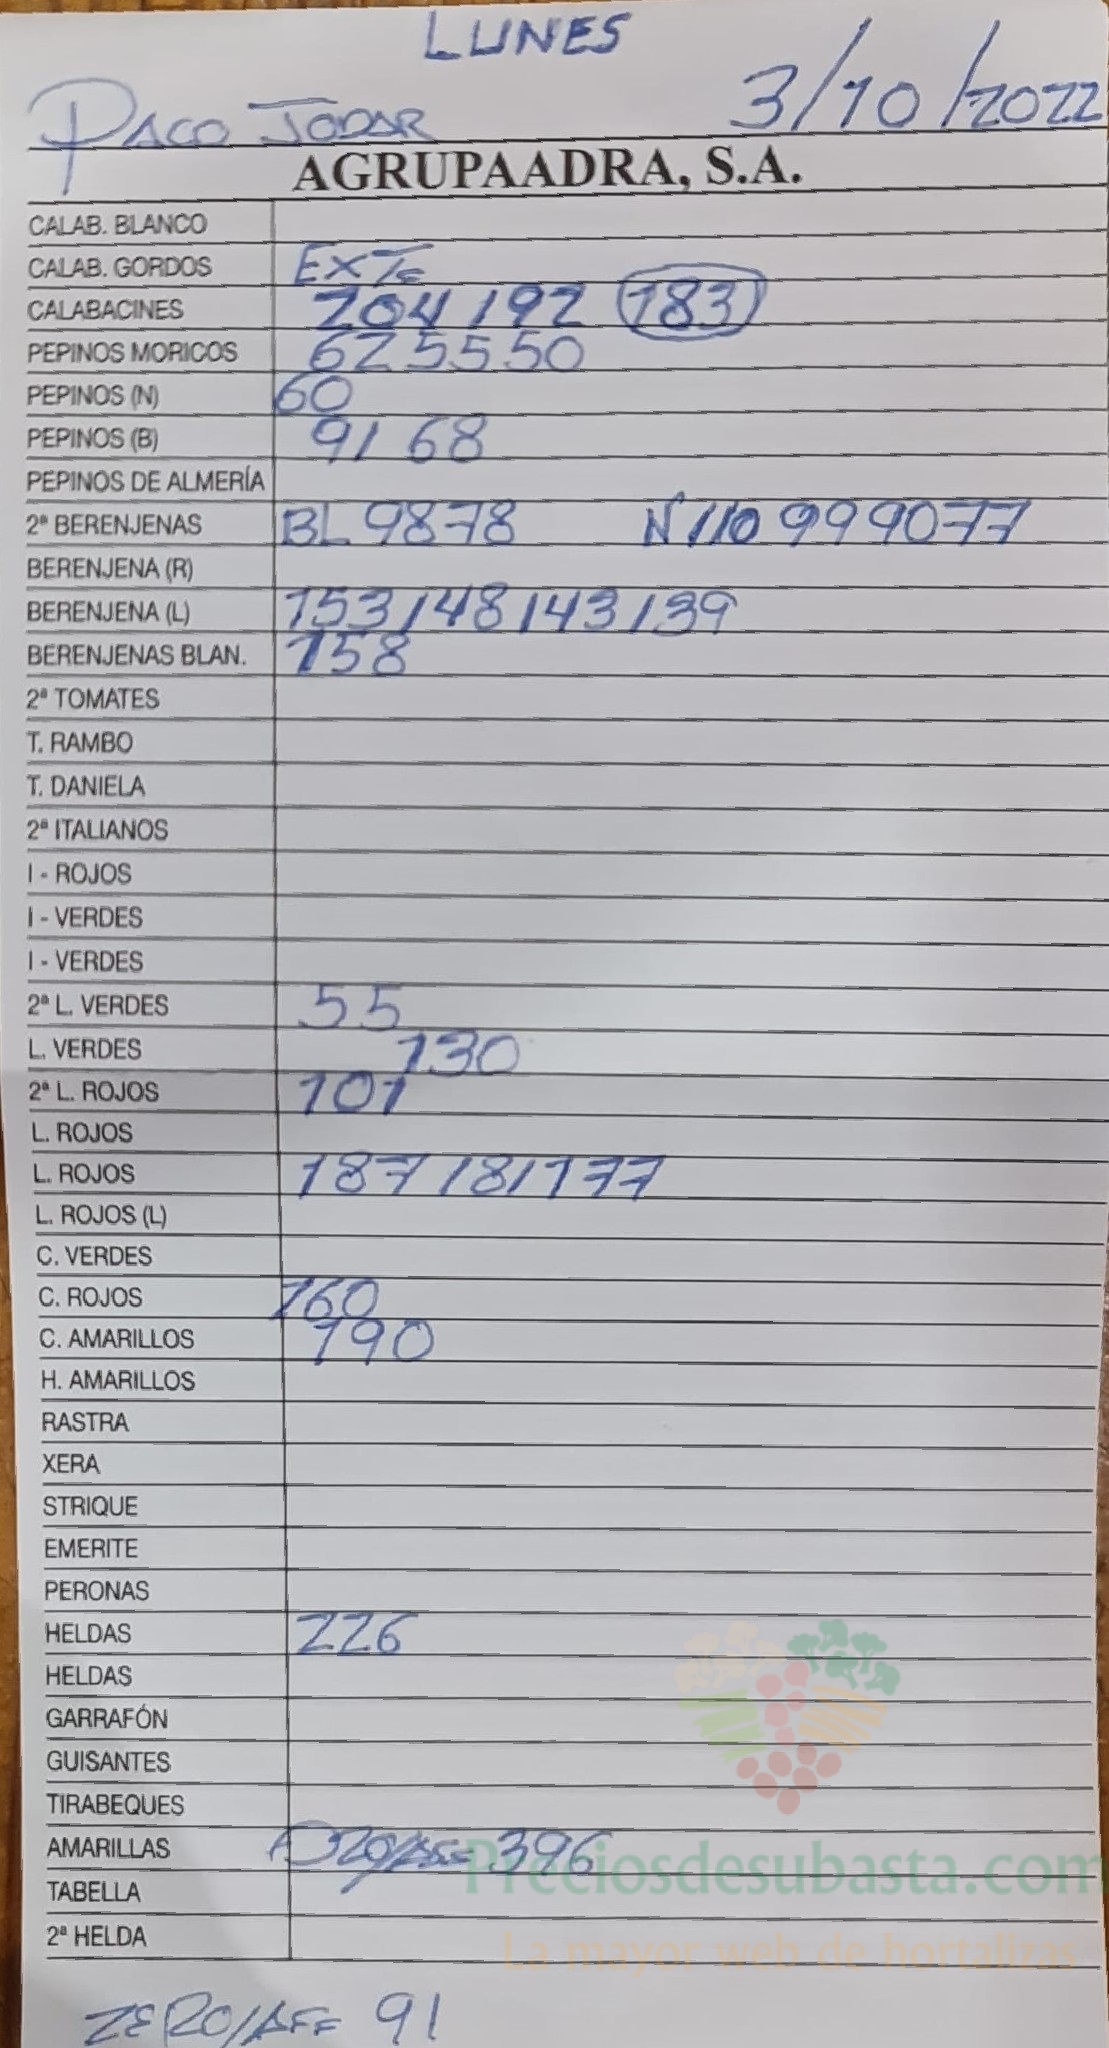 LUNES
PACO JODAR 3/10/2022
AGRUPAADRA, S.A.
CALAB. BLANCO
CALAB. GORDOS EXTE
CALABACINES 204 192 183
PEPINOS MORICOS 62 55 50
PEPINOS (N) 60
PEPINOS (B) 91 68
PEPINOS DE ALMERÍA
2ª BERENJENAS BL 98 78 N 110 99 90 77
BERENJENA (R)
BERENJENA (L) 153 148 143 139
BERENJENAS BLAN. 158
2ª TOMATES
T. RAMBO
T. DANIELA
2ª ITALIANOS
I - ROJOS
I - VERDES
I - VERDES
2ª L. VERDES 55
L. VERDES 130
2ª L. ROJOS 101
L. ROJOS
L. ROJOS 187 181 177
L. ROJOS (L)
C. VERDES
C. ROJOS 160
C. AMARILLOS 190
H. AMARILLOS
RASTRA
XERA
STRIQUE
EMERITE
PERONAS
HELDAS 226
HELDAS
GARRAFÓN
GUISANTES
TIRABEQUES
AMARILLAS 396
Preciosdesubasta.com
TABELLA
2ª HELDA
La mayor web de hortalizas
ZERO/AFF 91